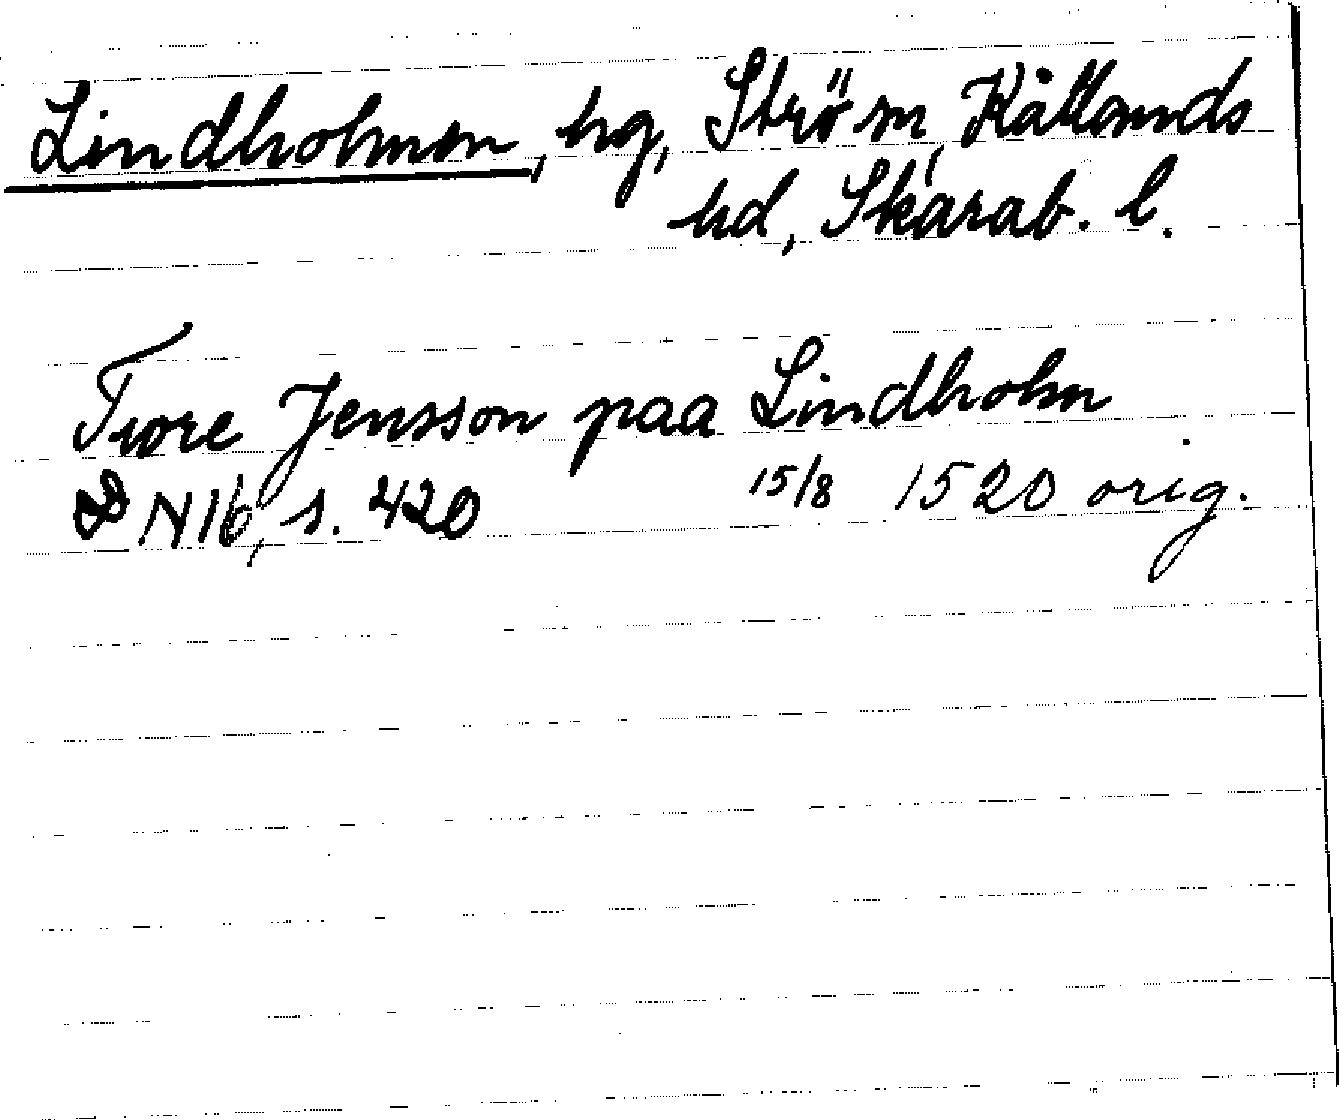 Lindholmen, hg, Ström, Kållands
hd, Skarab. l.
Twre Jensson paa Lindholm
DN16, s. 420 15/8 1520 orig.